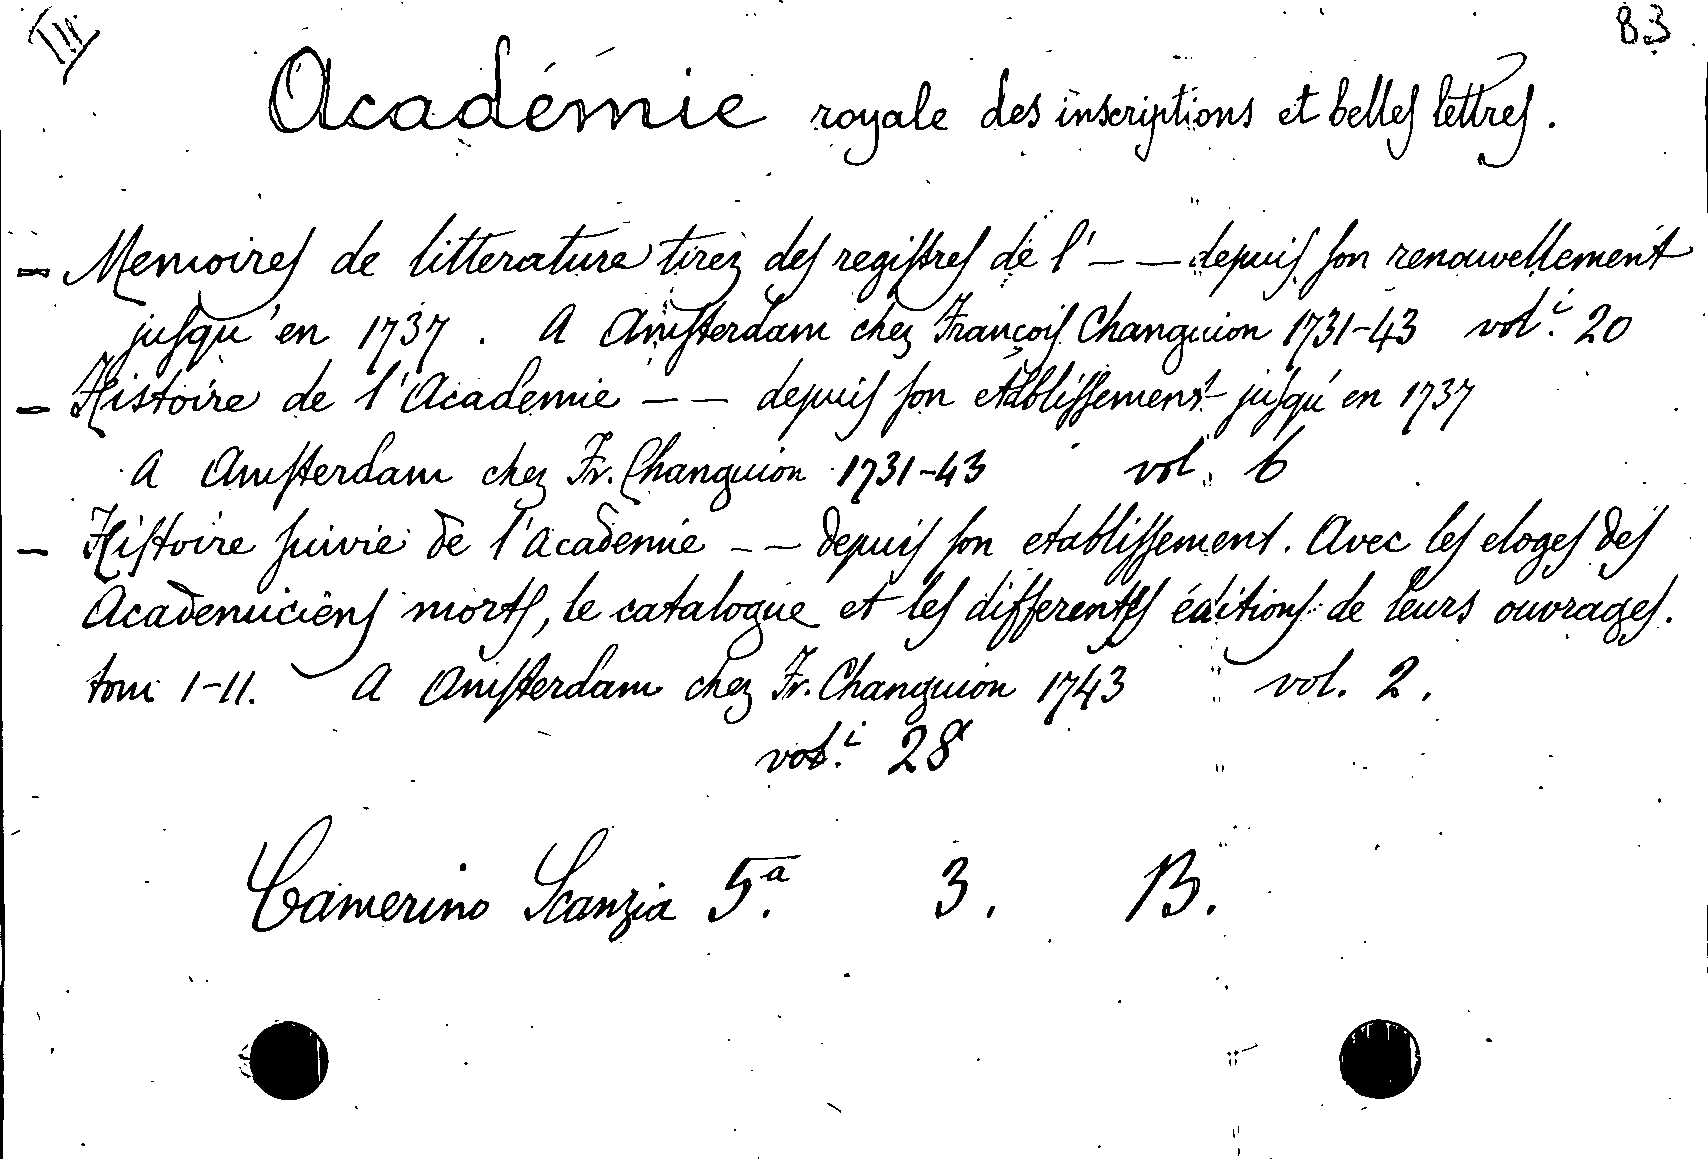 83
Académie royale des inscriptions et belles lettres.
- Memoires de litterature tirez des registres de l' - - depuis son renouvellement
jusqu'en 1737. A Amsterdam chez François Changuion 1731-43 vol.i 20
- Histoire de l'Academie - - depuis son etablissement jusqu'en 1737
A Amsterdam chez Fr. Changuion 1731-43 vol. 6
- Histoire suivie de l'academie - - depuis son etablissement. Avec les eloges des
Academiciens morts, le catalogue et les differentes éditions de leurs ouvrages.
tom 1-11. A Amsterdam chez Fr. Changuion 1743 vol. 2.
vol.i 28
Camerino Scanzia 5.a 3. B.